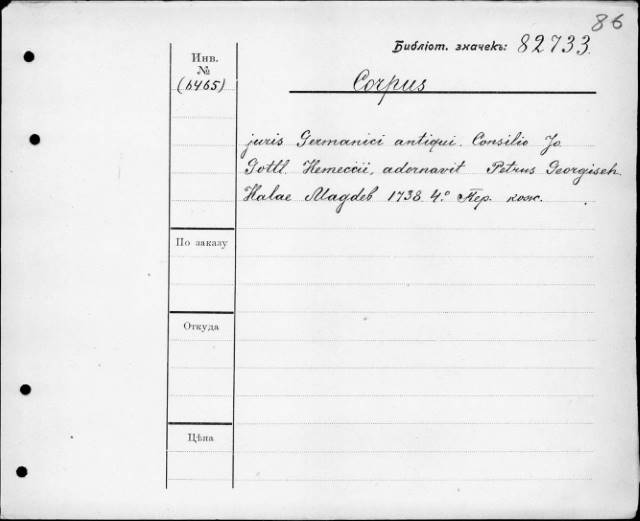 86
Библіот. значекъ: 82733.
Инв.
№
(6465)
Corpus
juris Germanici antiqui. Consilio Jo
Gottl. Hemeccii, adornavit Petrus Georgisch.
Halae Magdeb 1738. 4.° Пер. кож.
По заказу
Откуда
Цѣна